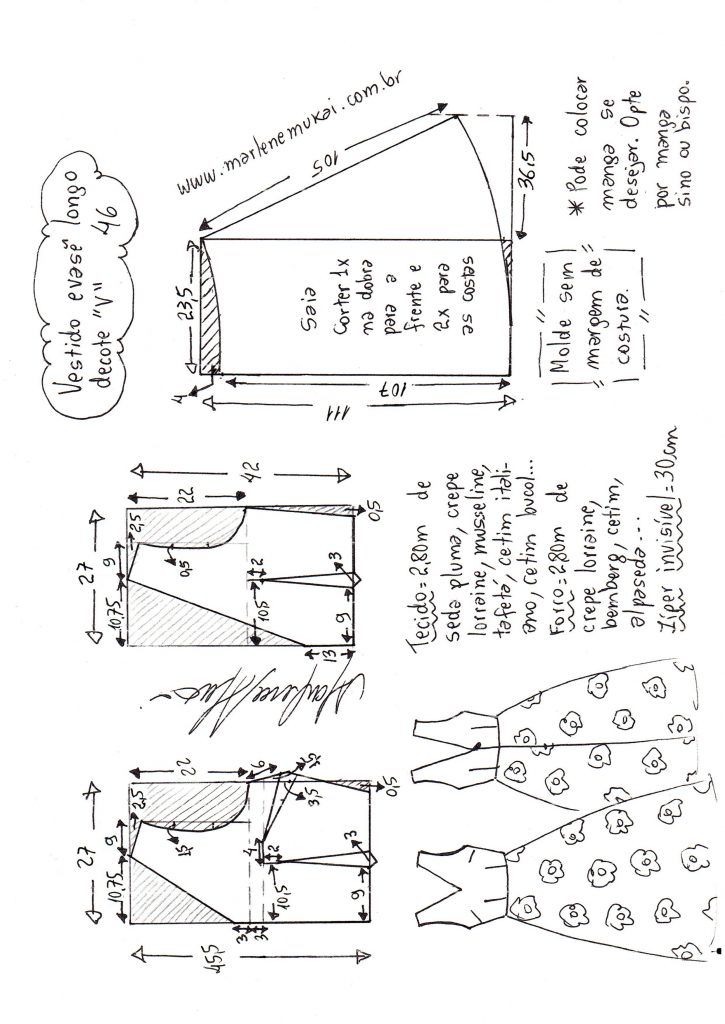 Vestido evasê longo
decote "V" 46
www.marlenemukai.com.br
105
36,5
23,5
4
111
107
Saia
Corter 1x
na dobra
para a
frente e
2x para
as costas
* Pode colocar
manga se
desejar. Opte
por manga
sino ou bispo.
Molde sem
margem de
costura.
27
10,75
9
2,5
22
42
0,5
0,5
10,5
2
3
9
13
Tecido=2,80m de
seda pluma, crepe
lorraine, musseline,
tafetá, cetim itali-
ano, cetim bucol...
Forro=2,80m de
crepe lorraine,
bemberg, cetim,
alpaseda...
Zíper invisível=30cm
27
10,75
9
2,5
22
6
3,5
3,5
0,5
4
2
10,5
3
9
3
3
45,5